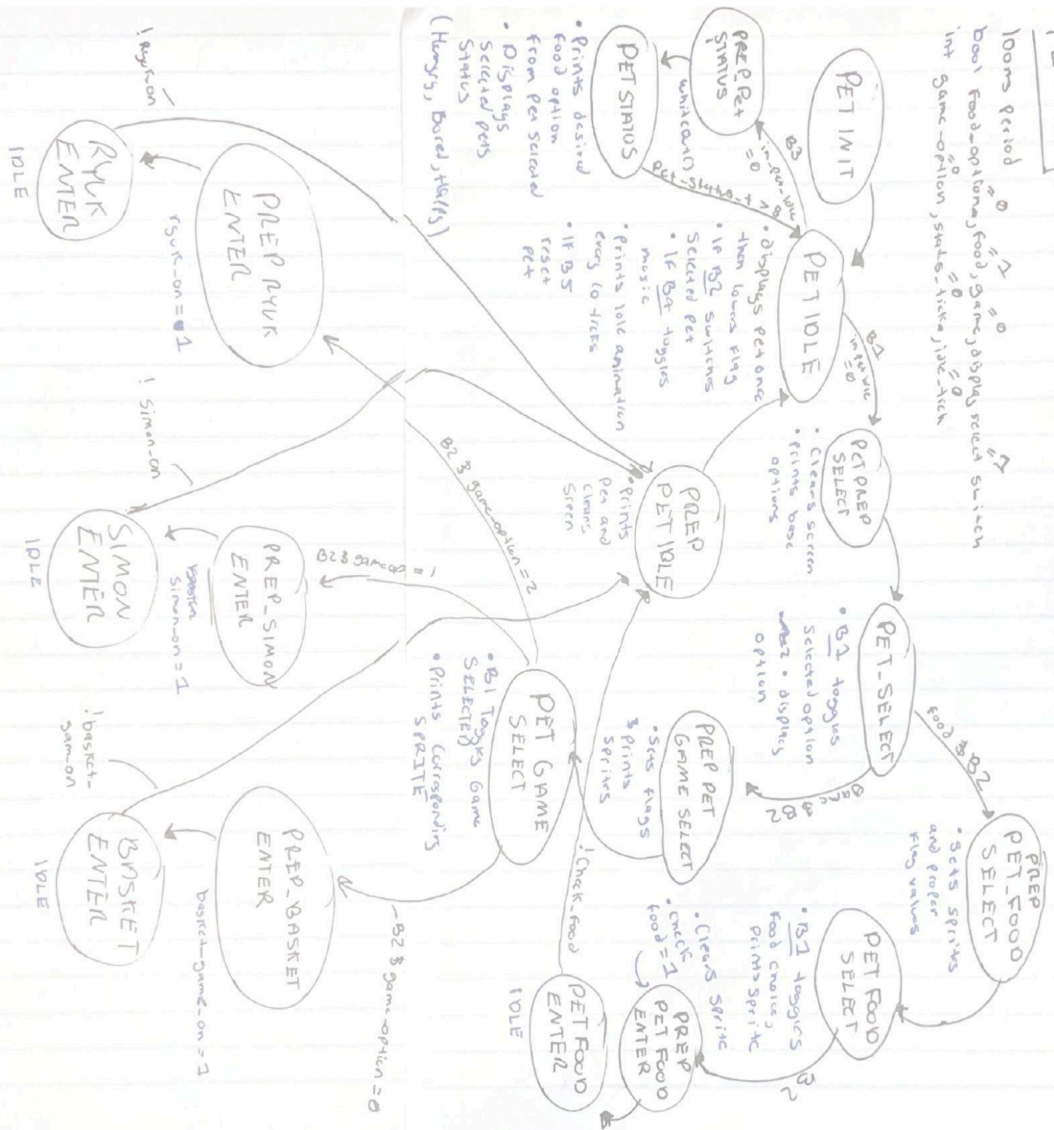 100ms period
=0 =1 =0 =1
bool food-optiona, food, game, display select switch
=0 =0 =0
int game-option, stats-ticks, idle-tick
PET INIT
PET IDLE
• displays pet once
then lowers flag
• IF B2 switches
selected pet
• IF B4 toggles
music
• prints idle animation
every 10 ticks
• IF B5
reset
pet
B3
=0
PREP_Pet
STATUS
PET STATUS
• Prints desired
food option
from pet selected
• Displays
selected pets
status
(Hungry, Bored, Happy)
B1
=0
PET PREP
SELECT
• Clears screen
• prints base
options
PET_SELECT
• B1 toggles
selected option
• displays
option
food & B2
Game & B2
PREP
PET_FOOD
SELECT
• Sets sprites
and proper
flag values
PET FOOD
SELECT
• B1 toggles
food choice,
Prints sprite
• Clears sprite
• check
food = 1
B2
PREP
PET FOOD
ENTER
PET FOOD
ENTER
IDLE
! Check-food
PREP PET
GAME SELECT
• Sets flags
& prints
sprites
PREP
PET IDLE
• Prints
Pet and
clears
Sreen
PET GAME
SELECT
• B1 Toggles Game
SELECTED
• Prints Corresponding
SPRITE
B2 & game-option = 2
B2 & gameop = 1
B2 & game-option = 0
PREP RYUK
ENTER
ryuk-on = 1
RYUK
ENTER
IDLE
! Ryuk on
PREP_SIMON
ENTER
Simon-on = 1
SIMON
ENTER
IDLE
! Simon-on
PREP_BASKET
ENTER
basket-game-on = 1
BASKET
ENTER
IDLE
! basket-
gam-on